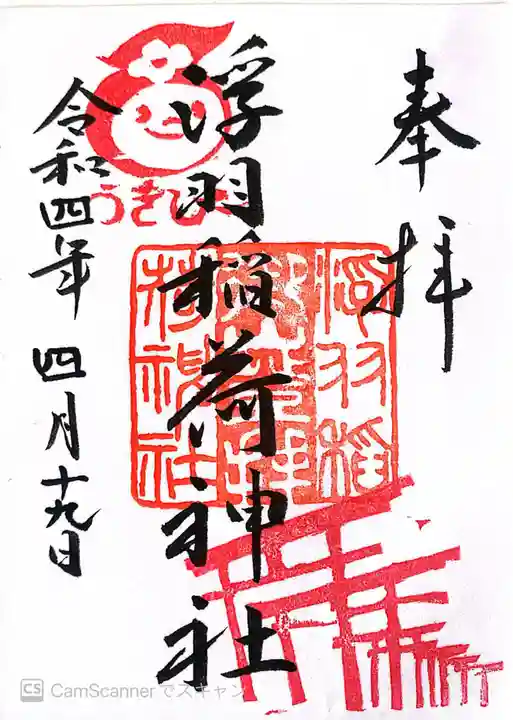 奉拝
浮羽稲荷神社
令和四年四月十九日
うきぴー
CS CamScannerでスキャン